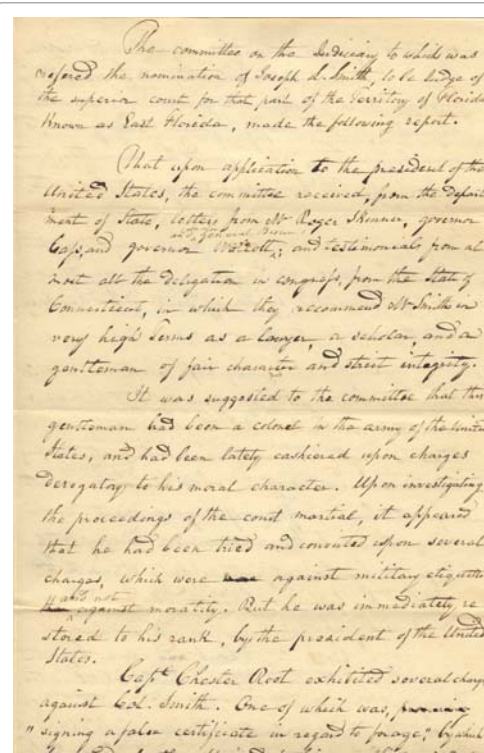 The committee on the Judiciary to which was
refered the nomination of Joseph L. Smith, to be Judge of
the superior court for that part of the Territory of Florida
Known as East Florida, made the following report.
That upon application to the president of the
United States, the committee received, from the depart
ment of State, letters from Mr Roger Skinner, governor
and General Brown,
Cass, and governor Wolcott; and testimonials from al
most all the deligation in congress, from the State of
Connecticut, in which they recommend Mr Smith in
very high Terms as a lawyer, a scholar, and a
gentleman of fair character and strict integrity.
It was suggested to the committee that this
gentleman had been a colonel in the army of the United
States, and had been lately cashiered upon charges
derogatory to his moral character. Upon investigating
the proceedings of the court martial, it appeared
that he had been tried and convicted upon several
charges, which were against military etiquette
and not
against morality. But he was immediately re
stored to his rank, by the president of the United
States.
Capt Chester Root exhibited several charges
against Col. Smith. One of which was,
"signing a false certificate in regard to forage," by which